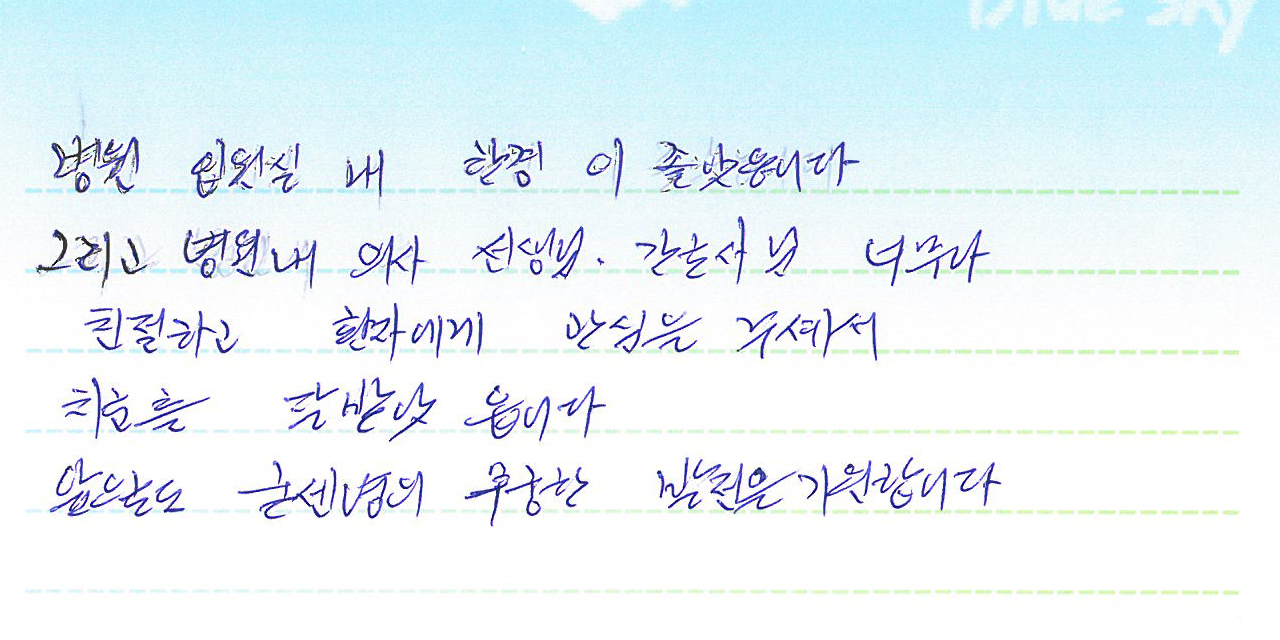 Blue Sky
병원 입원실 내 환경 이 졸밧읍니다
그리고 병원내 의사 선생님. 간호사 님 너무나
친절하고 환자에게 관심을 주셔서
치료를 잘받앗 읍니다
앞으로도 의 무궁한 발전을 기원합니다